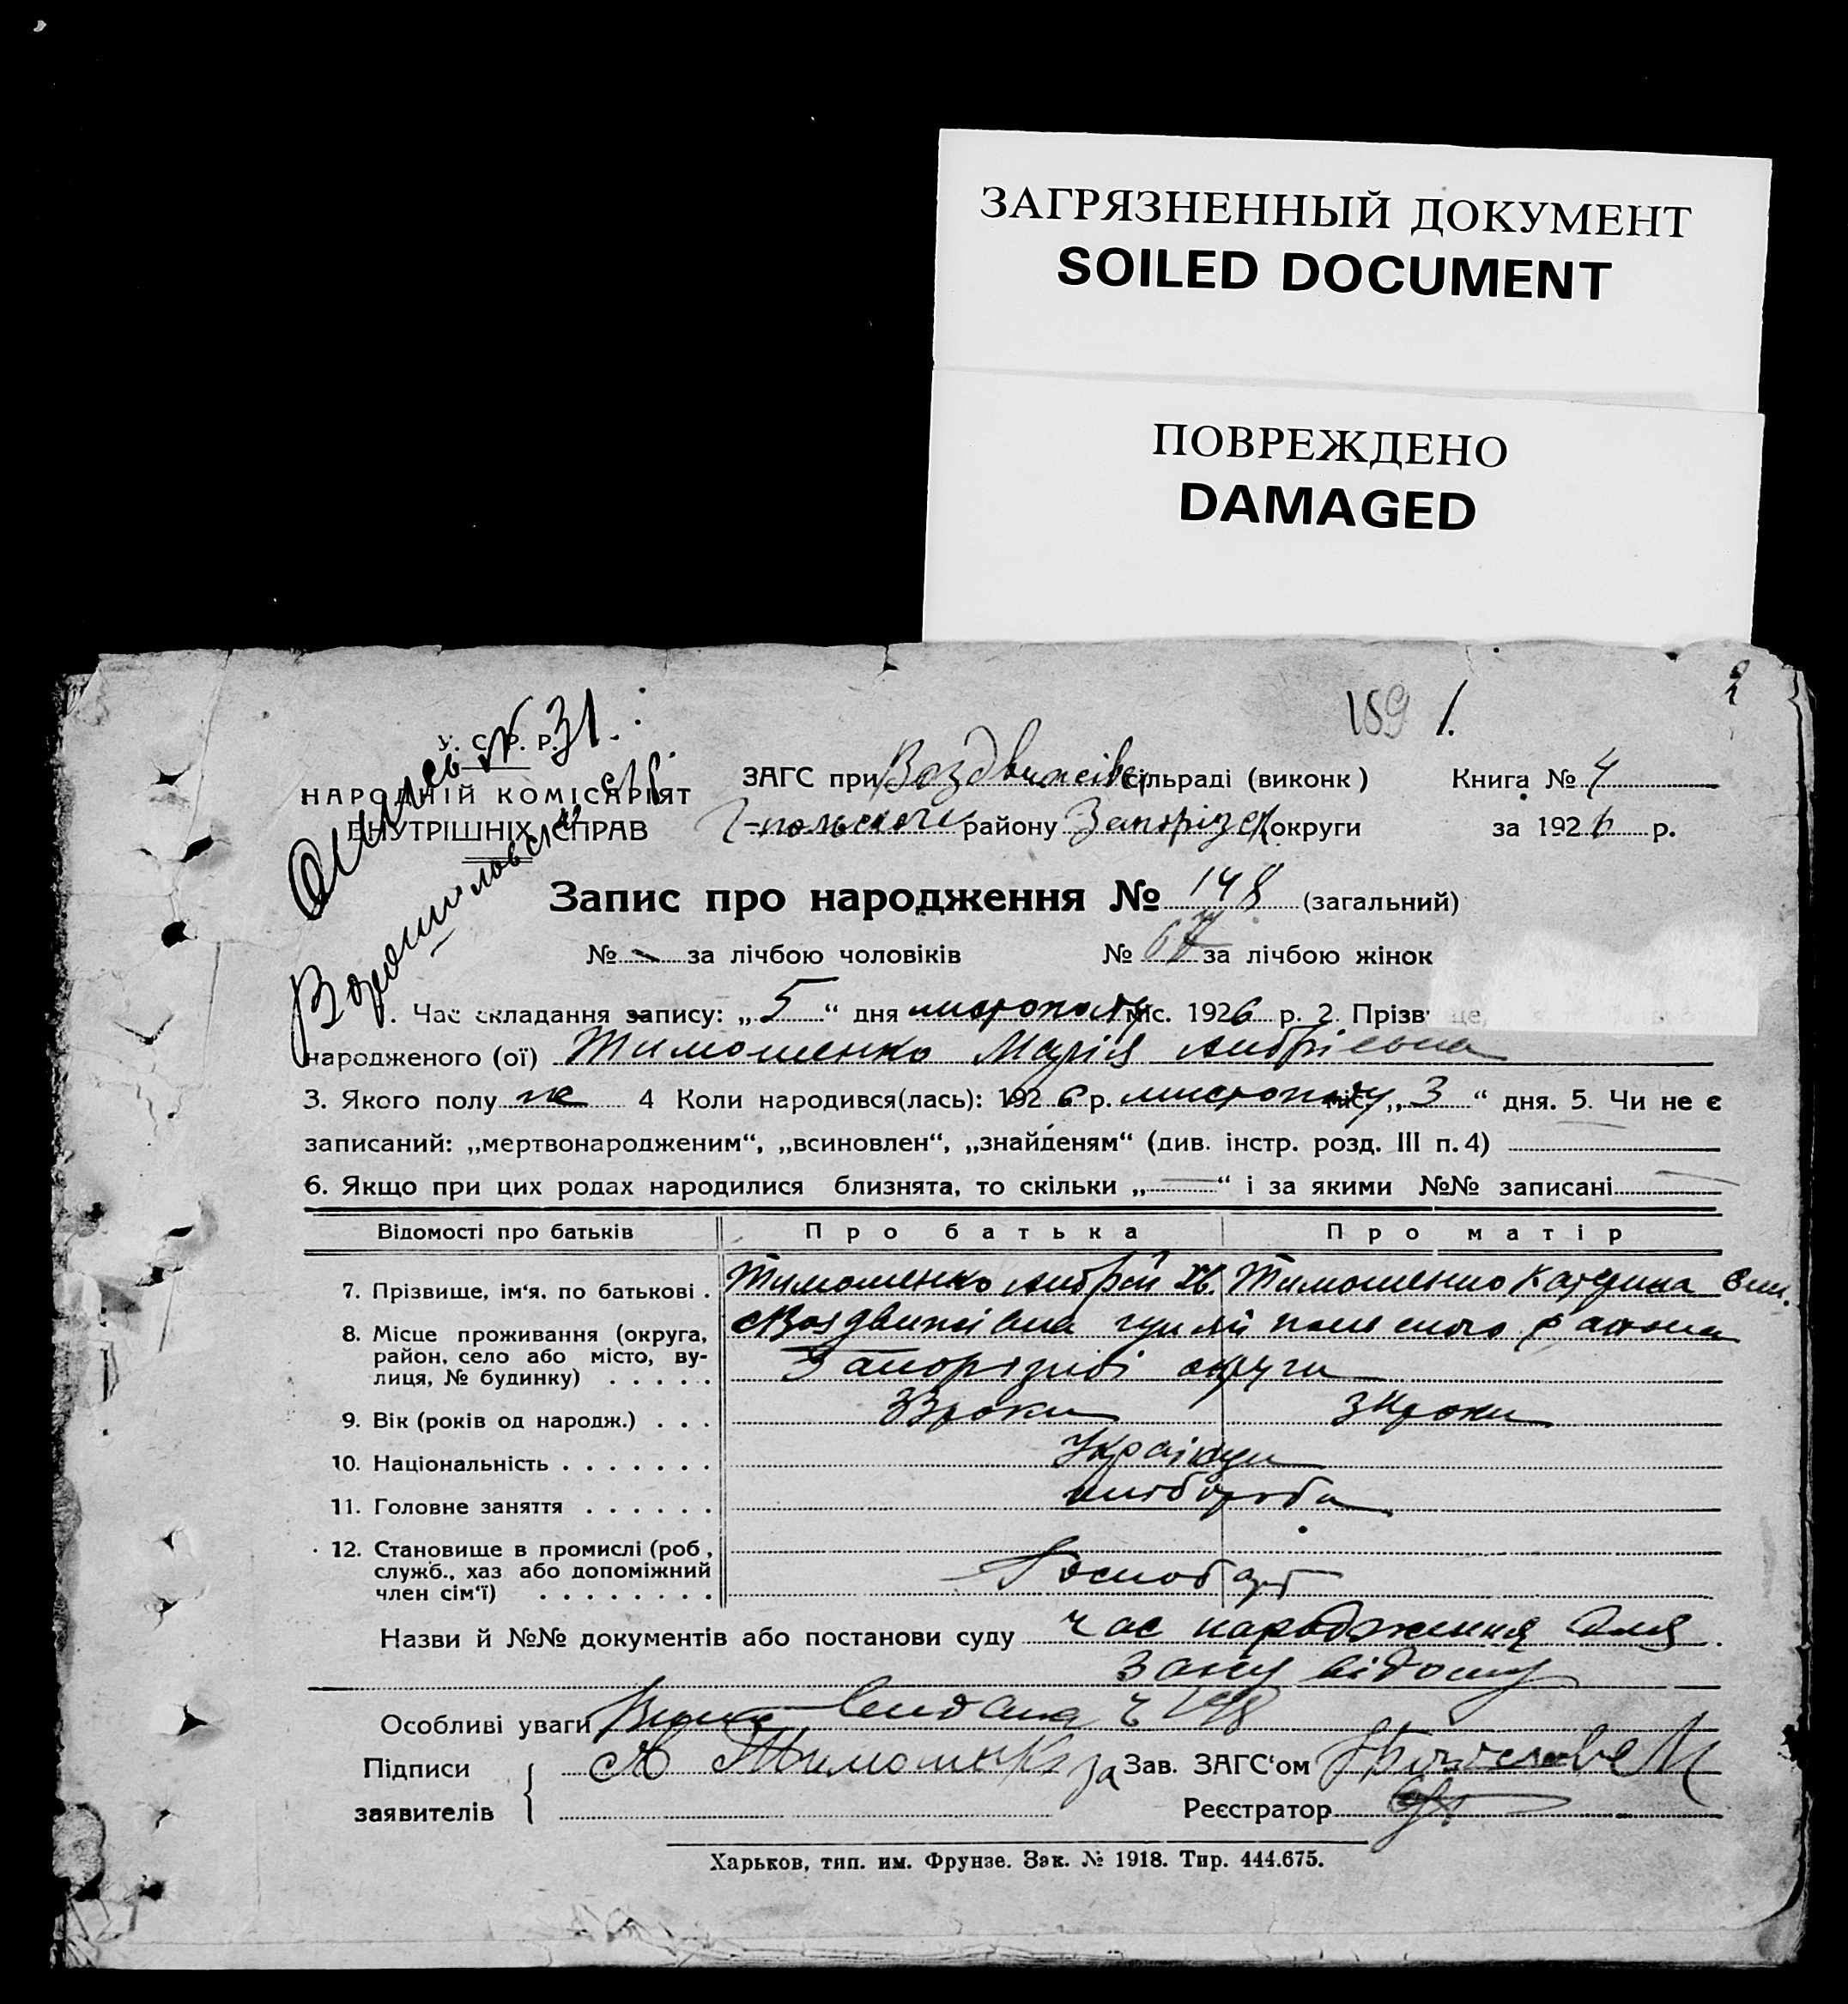 ЗАГРЯЗНЕННЫЙ ДОКУМЕНТ
SOILED DOCUMENT
ПОВРЕЖДЕНО
DAMAGED
189 1. 2
Опись № 31.
У. С. Р. Р.
НАРОДНІЙ КОМІСАРІЯТ
ВНУТРІШНІХ СПРАВ
ЗАГС при Воздвижівск сільраді (виконк) Книга № 4
Г-польского району Запорізск округи за 1926 р.
Запис про народження № 148 (загальний)
№ за лічбою чоловіків № 67 за лічбою жінок
Час складання запису: „ 5 “ дня листопаду міс. 1926 р. 2. Прізв
народженого (ої) Тимошенко Марія Андріевна
3. Якого полу ж 4 Коли народився(лась): 1926 р. листопаду міс. „ 3 “ дня. 5. Чи не є
записаний: „мертвонародженим“, „всиновлен“, „знайденям“ (див. інстр. розд. III п. 4)
6. Якщо при цих родах народилися близнята, то скільки „ — “ і за якими №№ записані —
Відомості про батьків Про батька Про матір
7. Прізвище, ім‘я, по батькові . Тимошенко Андрій Ів. Тимошенко Катерина
8. Місце проживання (округа, район, село або місто, вулиця, № будинку) . . . . . Воздвижівка гуляй польского района
Запорізької округи
9. Вік (років од народж.) . . . 33 роки 34 роки
10. Національність . . . . . . . Українци
11. Головне заняття . . . . . . хлібороба
12. Становище в промислі (роб, служб., хаз або допоміжний член сім‘ї) . . . . . . . . Господар
Назви й №№ документів або постанови суду час народження для
загсу відомо
Особливі уваги видана 148
Підписи заявителів А Тимошенко за Зав. ЗАГС‘ом
Реєстратор
Харьков, тип. им. Фрунзе. Зак. № 1918. Тир. 444.675.